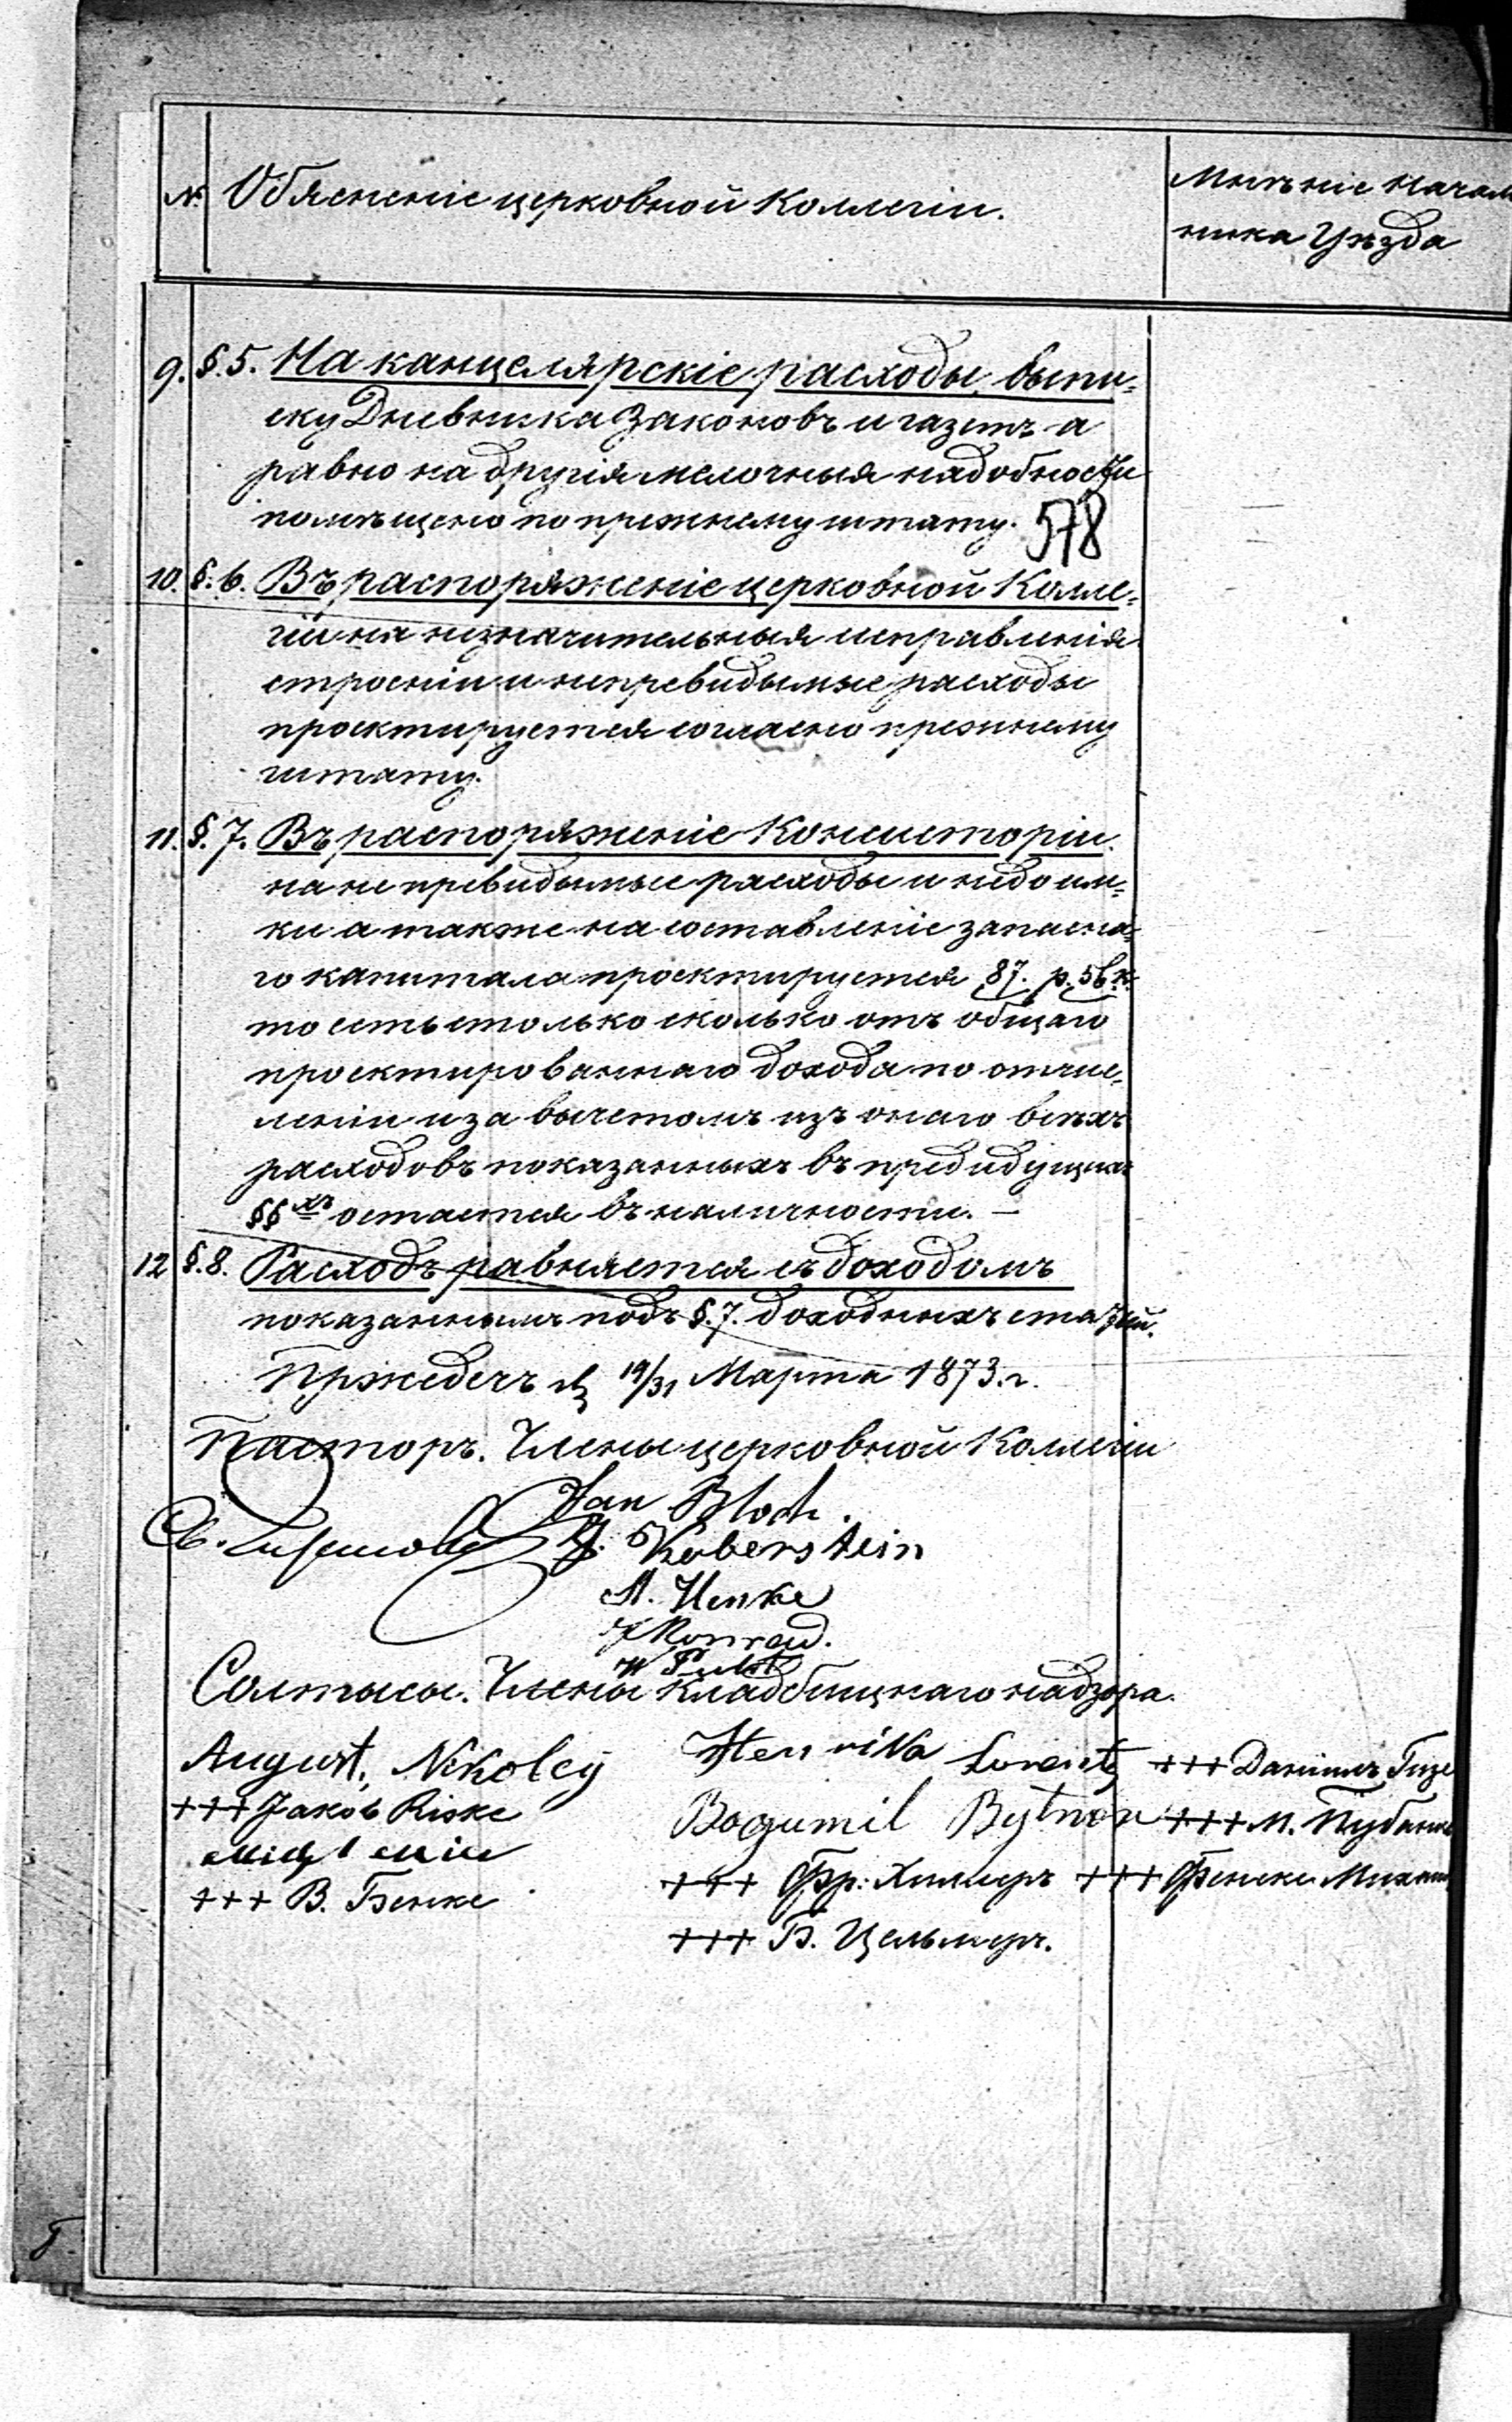 № Обясненіе церковной Коллегіи.
Мнѣніе Началь
ника Уѣзда
9. §. 5. На канцелярскіе расходы, выпи-
ску Дневника Законовъ и газетъ а
равно на другія мелочныя надобности
помѣщено по прежнему штату.
578
10. §. 6. Въ распоряженіе церковной Колле-
гіи на незначительныя исправленія
строеніи и непревидымые расходы
проектируется согласно прежнему
штату.
11. §. 7. Въ распоряженіе Консисторіи.
на не превидымые расходы и недоим-
ки а также на составленіе запасна-
го капитала проектируется 87. р. 56 к.
то есть столько сколько отъ общаго
проектированнаго дохода по отчис-
леніи и за вычетомъ изъ онаго всѣхъ
расходовъ показанныхъ въ предидущихъ
§§ хъ остается въ наличности. —
12 §. 8. Расходъ равняется съ доходомъ
показаннымъ подъ §. 7. доходныхъ статей.
Пржедечъ 19/31 Марта 1873. г.
Пасторъ. Члены церковной Коллегіи
Jan Bloch.
J. Koberstein
A. Henke
J Konrad.
W
Солтысы. Члены Кладбищнаго надзора.
August, Nikoley Henrika Lorentz +++ Даніилъ Гизе
+++ Jakob Riske Bogumil Bytner +++ М.
+++ Фр. Химлеръ +++ Фенске Михаил
+++ В. Бенке
+++ Б. Цельмеръ.